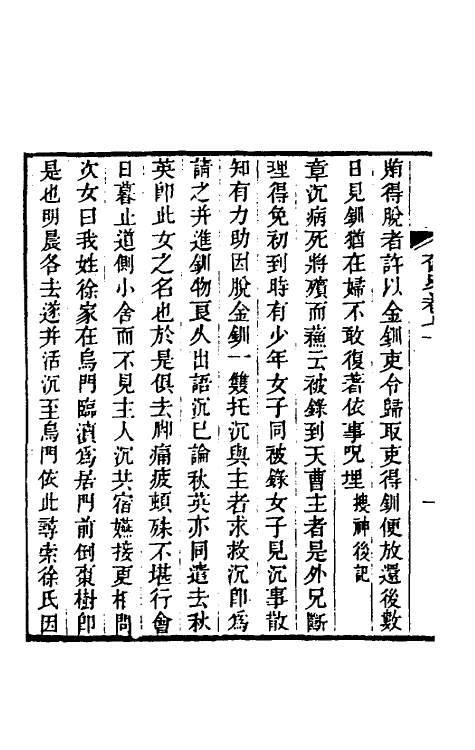 賄得脫者許以金釧吏令歸取吏得釧便放還後數
日見釧猶在婦不敢復著依事呪埋 搜神後記
章沉病死將殯而蘇云被錄到天曹主者是外兄斷
理得免初到時有少年女子同被錄女子見沉事散
知有力助因脫金釧一雙托沉與主者求救沉即為
請之并進釧物良久出語沉已論秋英亦同遣去秋
英即此女之名也於是俱去脚痛疲頓殊不堪行會
日暮止道側小舍而不見主人沉共宿嬿接更相問
次女曰我姓徐家在烏門臨瀆為居門前倒棗樹即
是也明晨各去遂并活沉至烏門依此尋索徐氏因